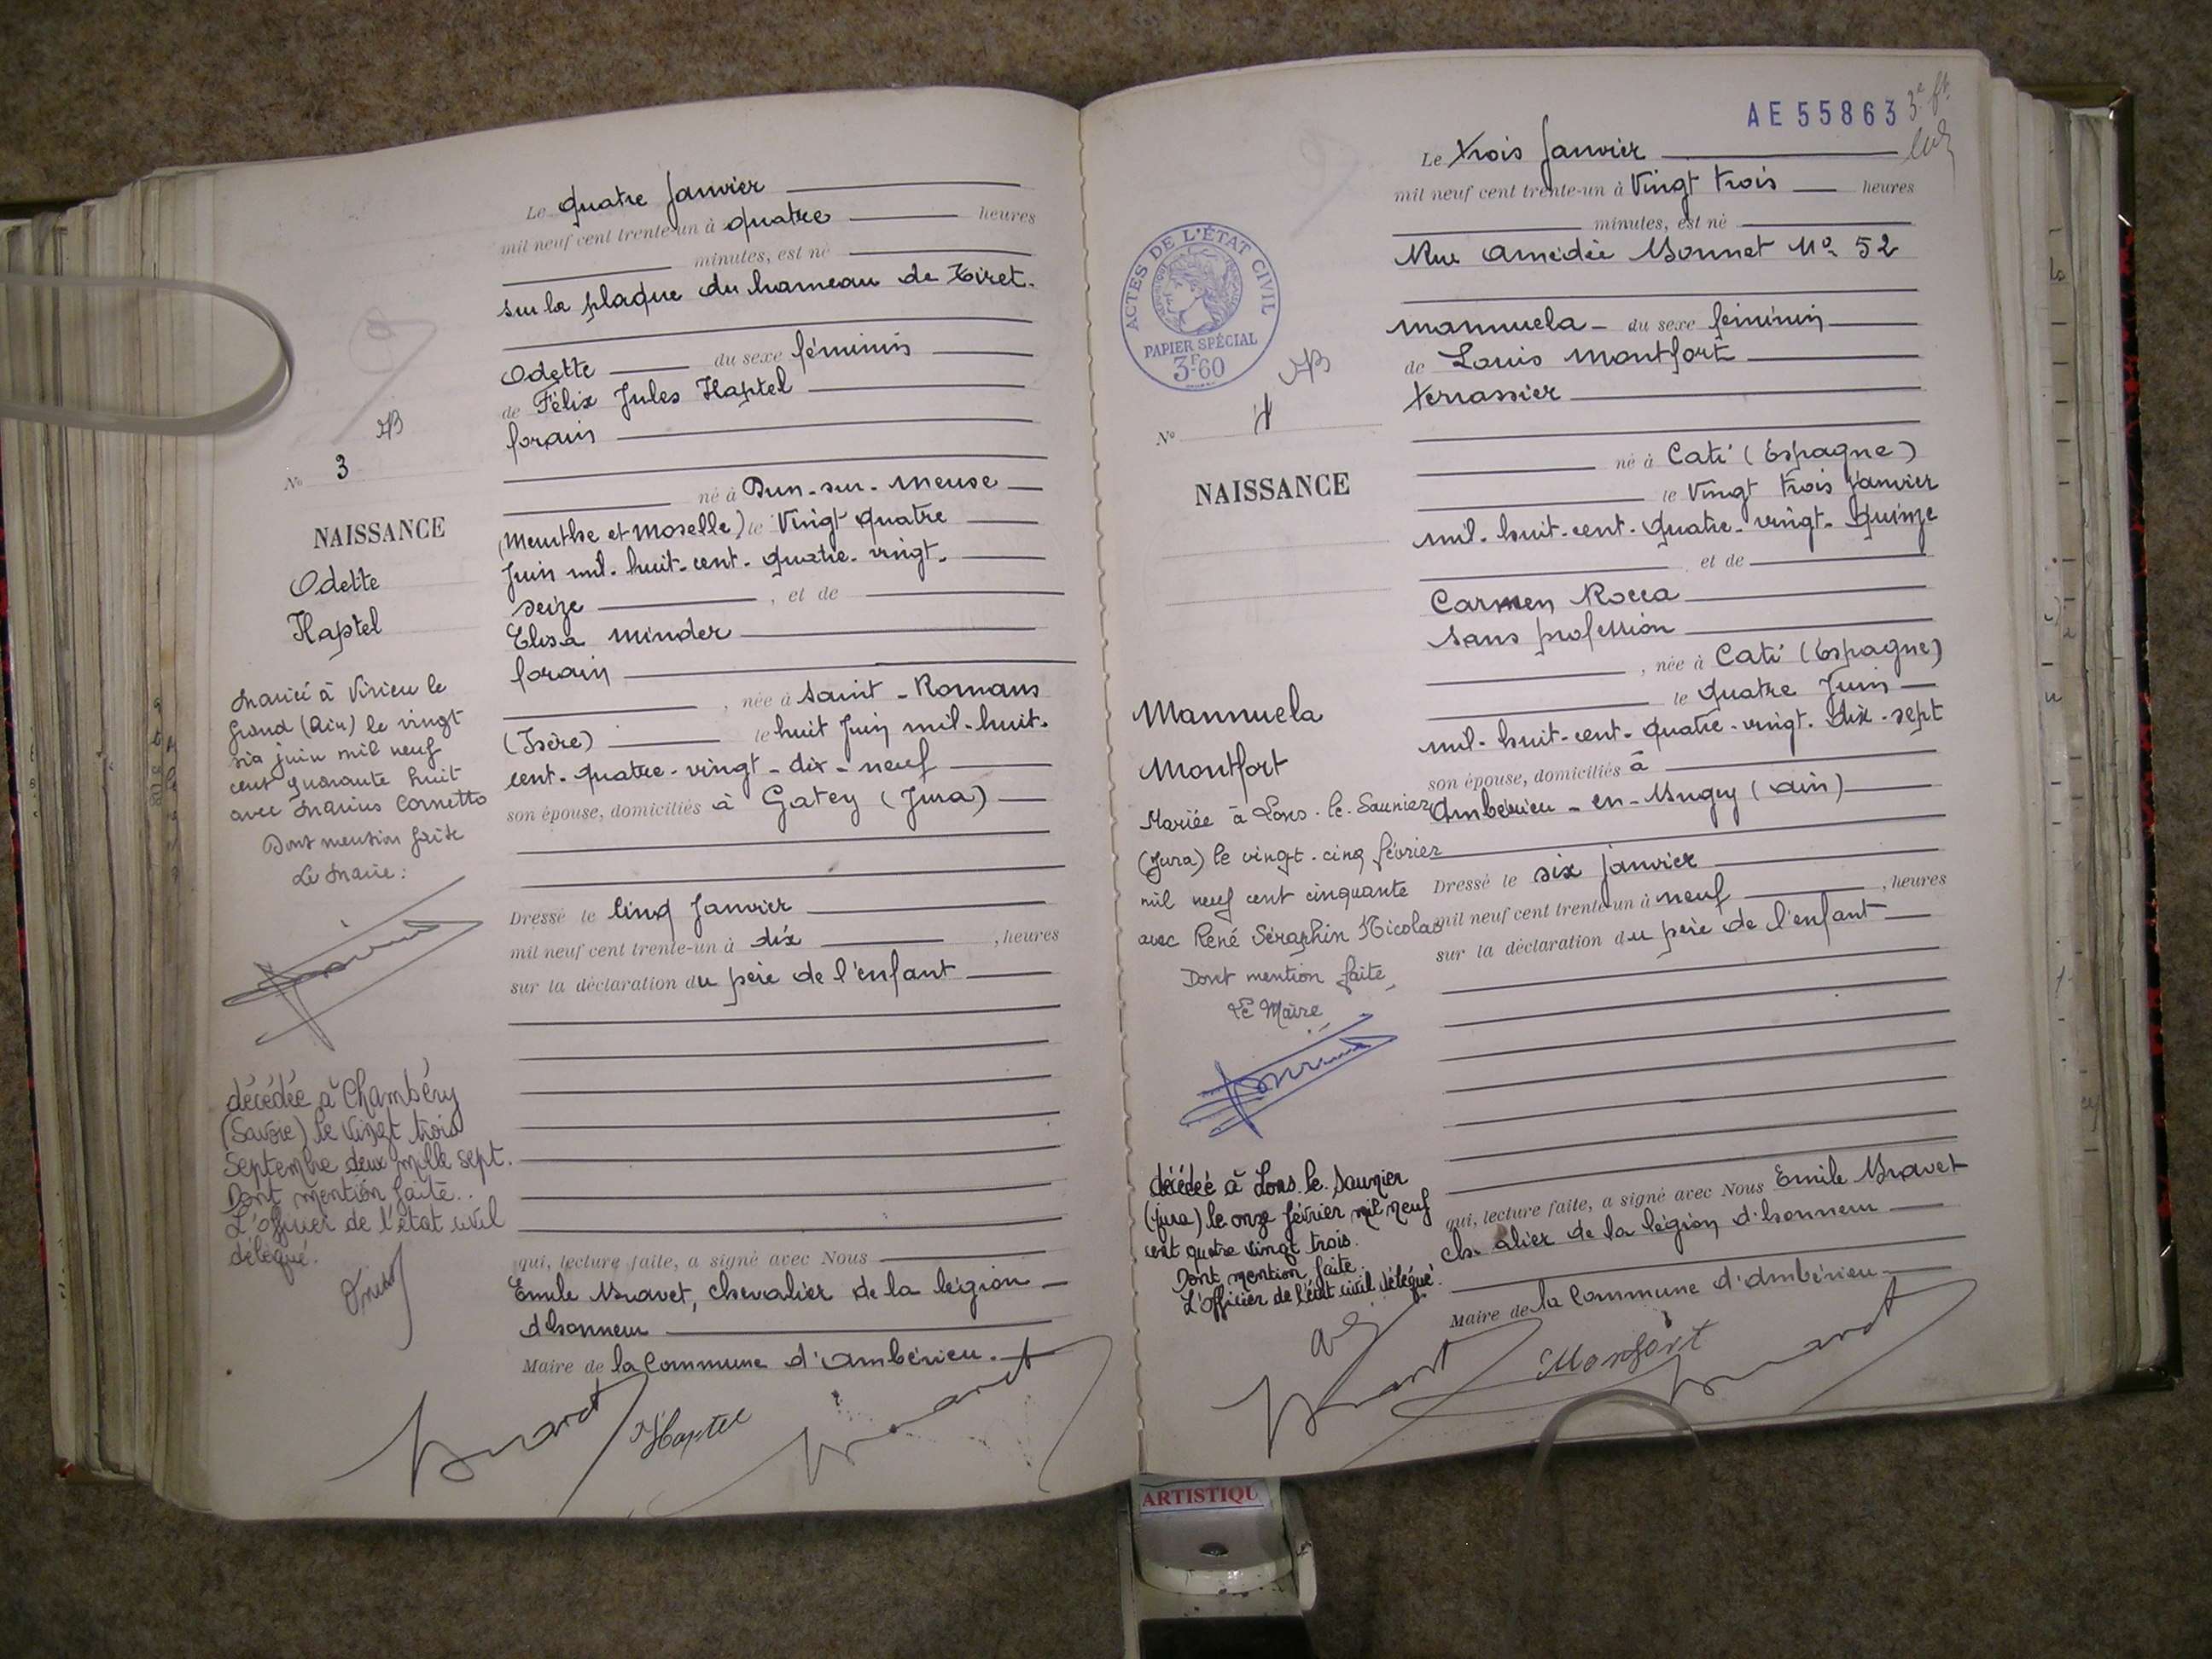 Le quatre Janvier
mil neuf cent trente-un à quatre heures
minutes, est né
sur la plaque du hameau de Tiret.
Odette du sexe féminin
de Félix Jules Haptel
forain
né à Dun-sur-Meuse
(Meurthe et Moselle) le Vingt quatre
Juin mil-huit-cent-quatre-vingt-
seize, et de
Elisa Minder
forain
, née à Saint-Romans
(Isère) le huit Juin mil-huit-
cent-quatre-vingt-dix-neuf
son épouse, domiciliés à Gatey (Jura)
Dressé le Cinq Janvier
mil neuf cent trente-un à dix, heures
sur la déclaration du père de l'enfant
qui, lecture faite, a signé avec Nous
Emile Bravet, chevalier de la légion
d'honneur
Maire de la Commune d'Ambérieu.
Haptel
No 3
NAISSANCE
Odette
Haptel
Mariée à Virieu le
Grand (Ain) le vingt
six juin mil neuf
cent quarante huit
avec Marius Cornetto
Dont mention faite
Le Maire:
décédée à Chambéry
(Savoie) le Vingt trois
Septembre deux mille sept.
Dont mention faite.
L'officier de l'état civil
délégué.
AE 55863
Le trois Janvier
mil neuf cent trente-un à Vingt trois heures
minutes, est né
Rue Amédée Bonnet No 52
Mannuela du sexe féminin
de Louis Montfort
terrassier
né à Cati (Espagne)
le Vingt trois Janvier
mil-huit-cent-quatre-vingt-quinze
et de
Carmen Rocca
sans profession
, née à Cati (Espagne)
le quatre Juin
mil-huit-cent-quatre-vingt-dix-sept
son épouse, domiciliés à
Ambérieu-en-Bugey (Ain)
Dressé le six Janvier
mil neuf cent trente-un à neuf, heures
sur la déclaration du père de l'enfant
qui, lecture faite, a signé avec Nous Emile Bravet
che alier de la légion d'honneur
Maire de la Commune d'Ambérieu
Monfort
ACTES DE L'ÉTAT CIVIL
RÉPUBLIQUE FRANÇAISE
PAPIER SPÉCIAL
3F60
No 4
NAISSANCE
Mannuela
Montfort
Mariée à Lons-le-Saunier
(Jura) le vingt-cinq février
mil neuf cent cinquante
avec René Séraphin Nicolas
Dont mention faite,
Le Maire,
décédée à Lons-le-Saunier
(Jura) le onze février mil neuf
cent quatre vingt trois.
Dont mention faite.
L'officier de l'état civil délégué.
ARTISTIQU